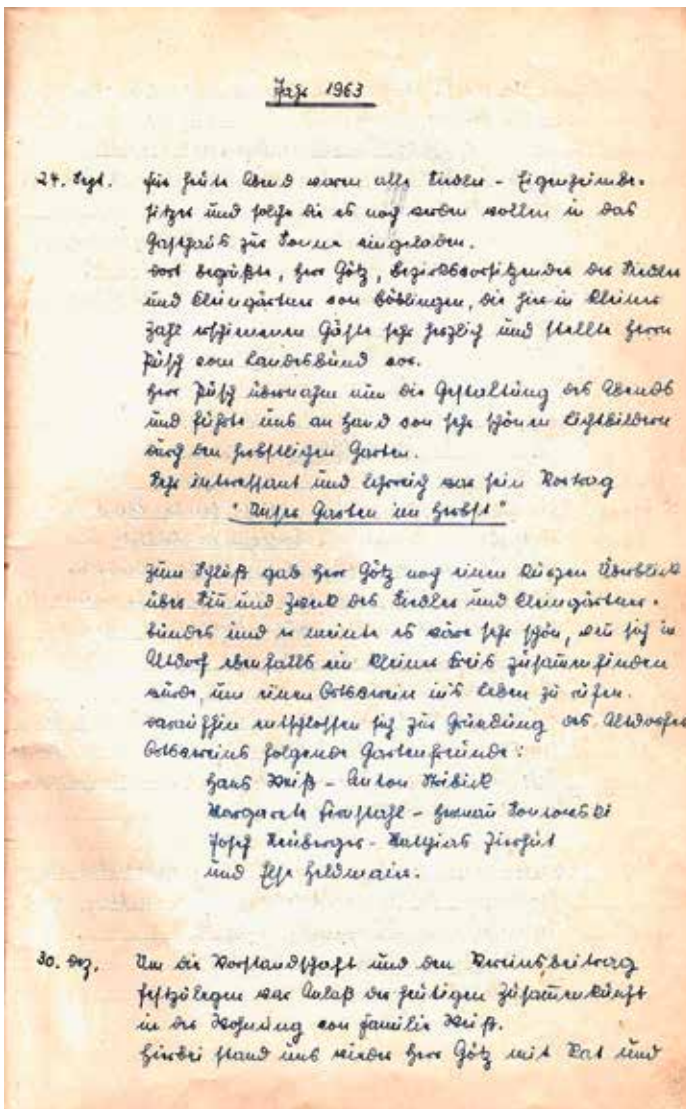 Jahr 1963
24. Sept. Für heute Abend waren alle Siedler - Eigenheimbe-
sitzer und solche die es noch werden wollen in das
Gasthaus zur Sonne eingeladen.
Dort begrüßte, Herr Götz, Bezirksvorsitzender der Siedler
und Kleingärtner von Böblingen, die hier in kleiner
Zahl erschienenen Gäste sehr herzlich und stellte Herrn
vom Landesbund vor.
Herr übernahm nun die Gestaltung des Abends
und führte uns an Hand von sehr schönen Lichtbildern
durch den herbstlichen Garten.
Sehr interessant und lehrreich war sein Vortrag
"Unser Garten im Herbst"
Zum Schluß gab Herr Götz noch einen kurzen Überblick
über Sin und Zweck des Siedler und Kleingärtner-
bundes und er meinte es wäre sehr schön, wen sich in
Altdorf ebenfalls ein kleiner Kreis zusammenfinden
würde, um einen Ortsverein in's Leben zu rufen.
Daraufhin entschlossen sich zur Gründung des Altdorfer
Ortsvereins folgende Gartenfreunde:
Hans Weiß - Anton
Margarete Firnstahl - Herman
Josef Neuberger - Mathias Zierhut
und Else Heldmaier.
30. Dez. Um die Vorstandschaft und den Vereinsbeitrag
festzulegen war Anlaß der heutigen Zusammenkunft
in der Wohnung von Familie Weiß.
Hierbei stand uns wieder Herr Götz mit Rat und